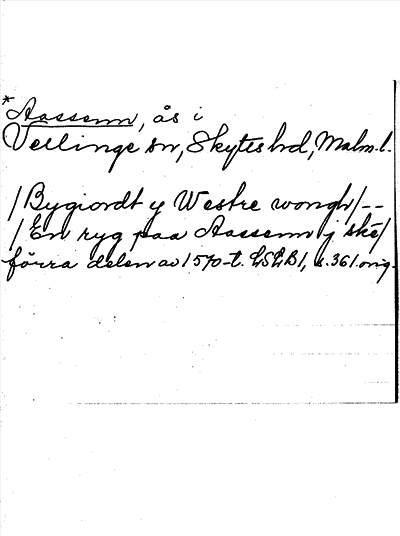 *Aassenn, ås i
Vellinge sn, Skytts hd, Malm. l.
/Bygiordt y Westre wongh/--
/En ryg paa Aassenn j skē/
förra delen av 1570-t. LSLB1, s. 361. orig.